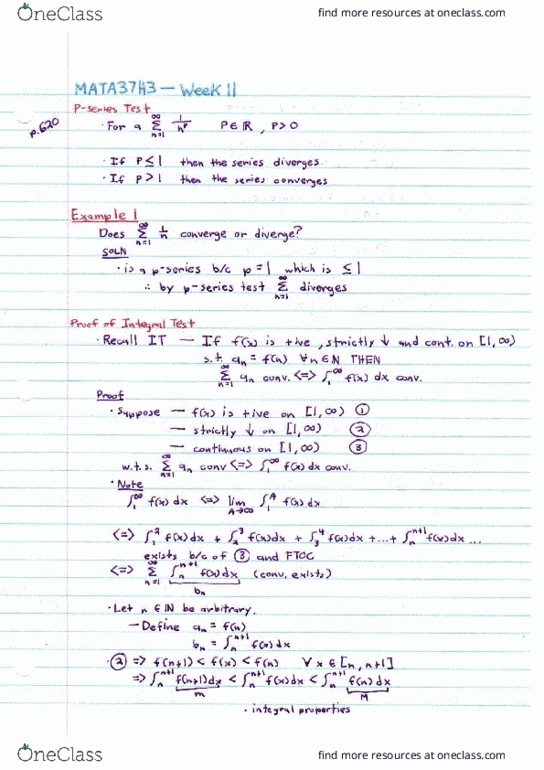 OneClass
find more resources at oneclass.com
MATA37H3 — Week 11
P-series Test
p.620
· For a ∑_{n=1}^{∞} 1/n^p P ∈ ℝ, P > 0
· If P ≤ 1 then the series diverges
· If P > 1 then the series converges
Example 1
Does ∑_{n=1}^{∞} 1/n converge or diverge?
SOLN
· is a p-series b/c p = 1 which is ≤ 1
∴ by p-series test ∑_{n=1}^{∞} diverges
Proof of Integral Test
· Recall IT — If f(x) is +ive, strictly ↓ and cont. on [1,∞)
s.t. a_n = f(n) ∀n∈ℕ THEN
∑_{n=1}^{∞} a_n conv. <=> ∫_1^∞ f(x) dx conv.
Proof
· Suppose — f(x) is +ive on [1,∞) ①
— strictly ↓ on [1,∞) ②
— continuous on [1,∞) ③
w.t.s. ∑_{n=1}^{∞} a_n conv <=> ∫_1^∞ f(x) dx conv.
· Note
∫_1^∞ f(x) dx <=> lim_{A→∞} ∫_1^A f(x) dx
<=> ∫_1^2 f(x) dx + ∫_2^3 f(x) dx + ∫_3^4 f(x) dx + ... + ∫_n^{n+1} f(x) dx ...
exists b/c of ③ and FTOC
<=> ∑_{n=1}^{∞} ∫_n^{n+1} f(x) dx (conv. exists)
b_n
· Let n ∈ ℕ be arbitrary.
— Define a_n = f(n)
b_n = ∫_n^{n+1} f(x) dx
· ② => f(n+1) < f(x) < f(n) ∀ x ∈ [n, n+1]
=> ∫_n^{n+1} f(n+1) dx < ∫_n^{n+1} f(x) dx < ∫_n^{n+1} f(n) dx
m M
· integral properties
OneClass
find more resources at oneclass.com